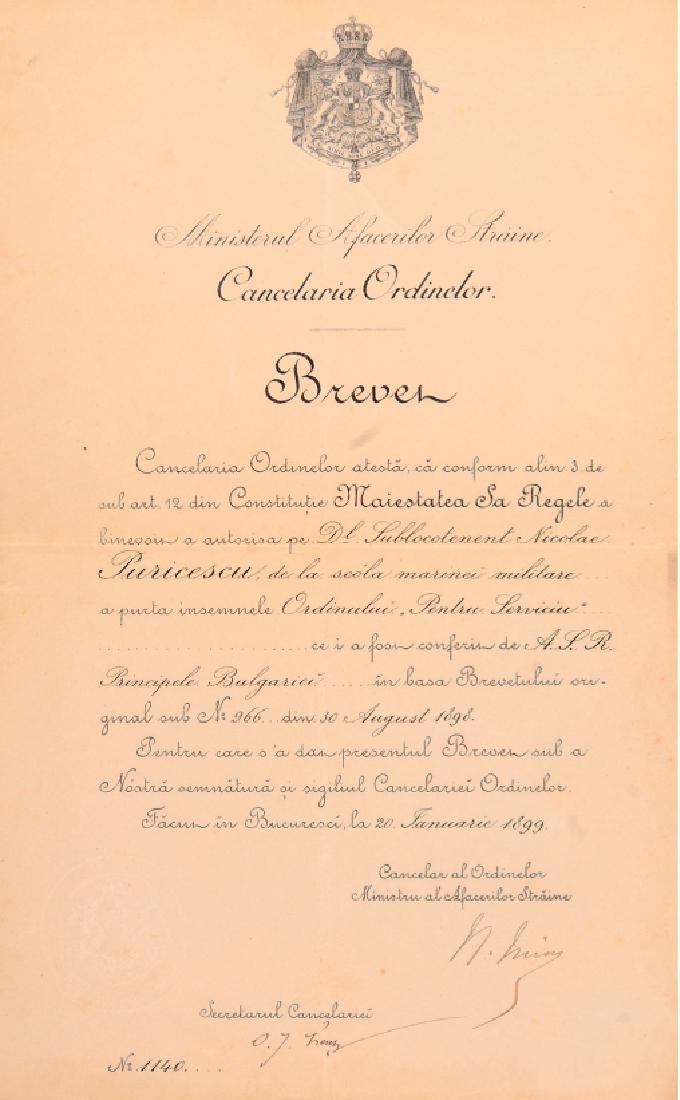 NIHIL SINE DEO
Ministerul Afacerilor Străine.
Cancelaria Ordinelor.
Brevet
Cancelaria Ordinelor atestă, că conform alin 3 de
sub art. 12 din Constituție Maiestatea Sa Regele a
binevoit a autorisa pe Dl. Sublocotenent Nicolae
Puricescu, de la scóla marinei militare
a purta insemnele Ordinului „Pentru Serviciu"
ce i a fost conferit de A. S. R.
Principele Bulgariei în basa Brevetului ori-
ginal sub No. 966 din 30 August 1898.
Pentru care s'a dat presentul Brevet sub a
Nóstră semnătură și sigiliul Cancelariei Ordinelor.
Făcut în Bucuresci, la 20 Ianuarie 1899.
Cancelar al Ordinelor
Ministru al Afacerilor Străine
Secretarul Cancelariei
No. 1140